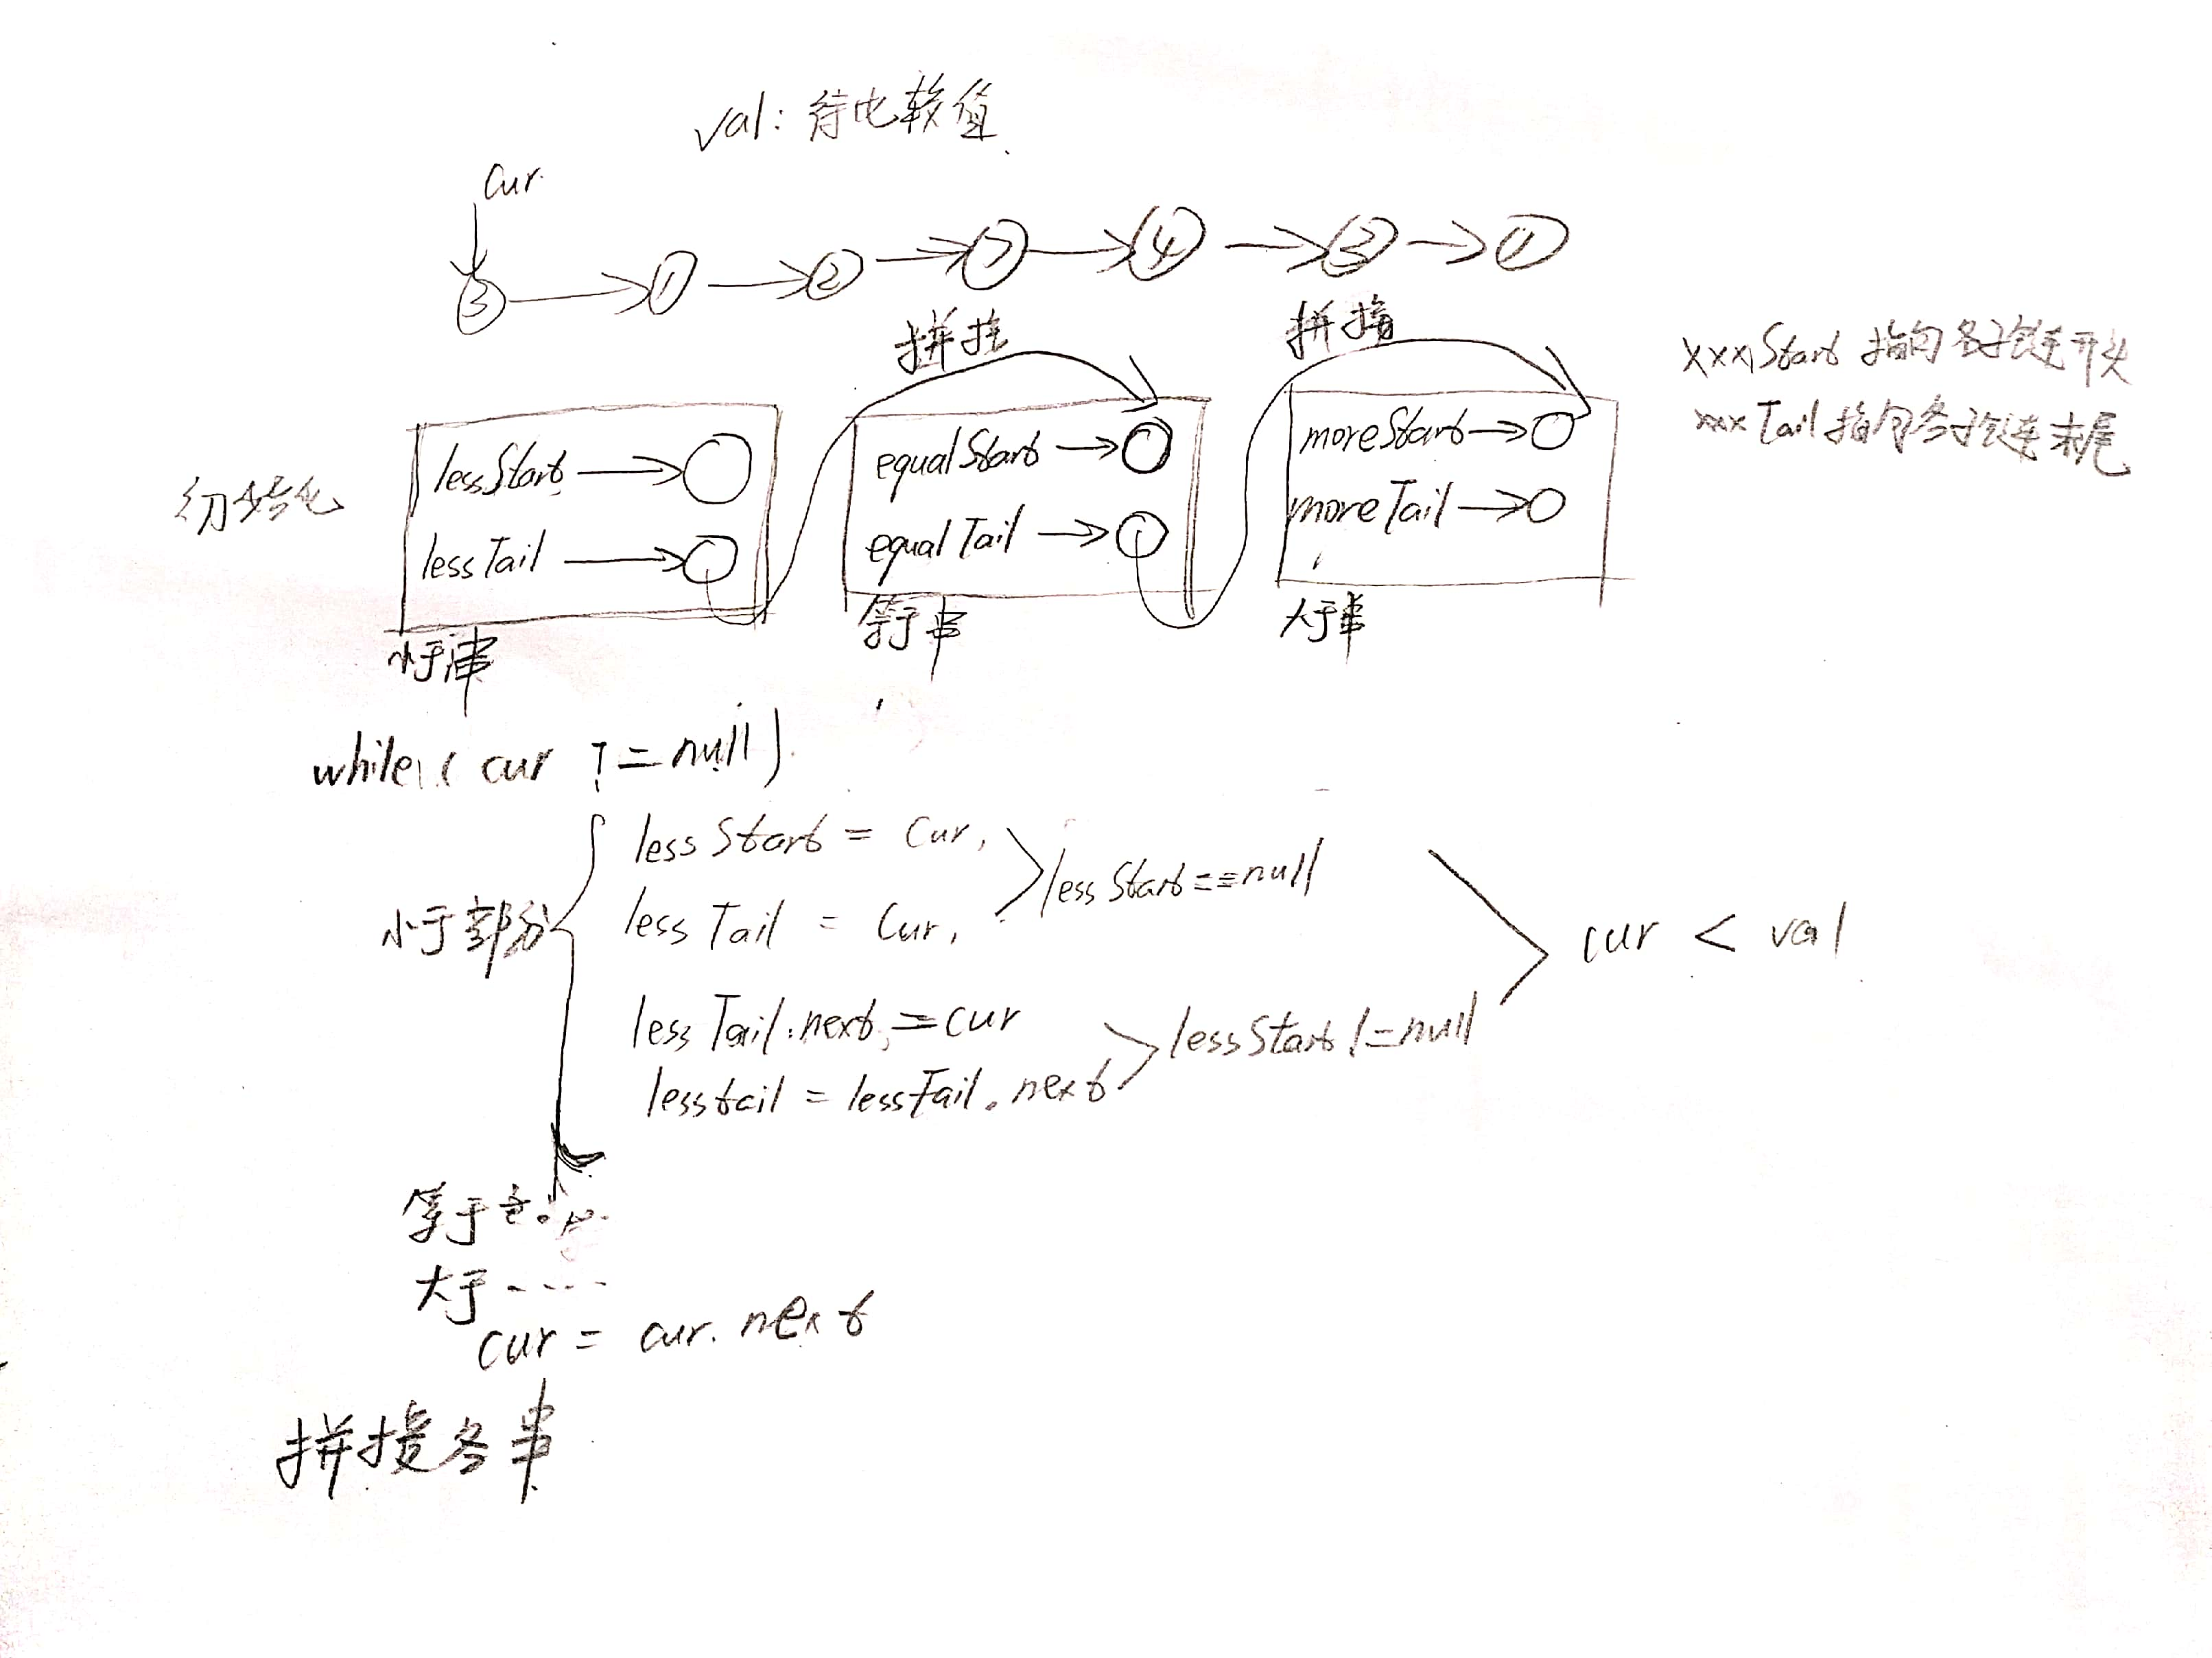 val: 待比较值
cur
3 1 2 7 4 3 1
拼接 拼接
xxxStart 指向各子链开头
xxxTail 指向各子链末尾
初始化
lessStart
lessTail
小于串
equalStart
equalTail
等于串
moreStart
moreTail
大于串
while( cur != null)
小于部分
lessStart = cur,
lessTail = cur,
lessStart==null
lessTail.next=cur
lesstail = lessTail.next
lessStart!=null
cur < val
等于
大于 ....
cur = cur.next
拼接各串